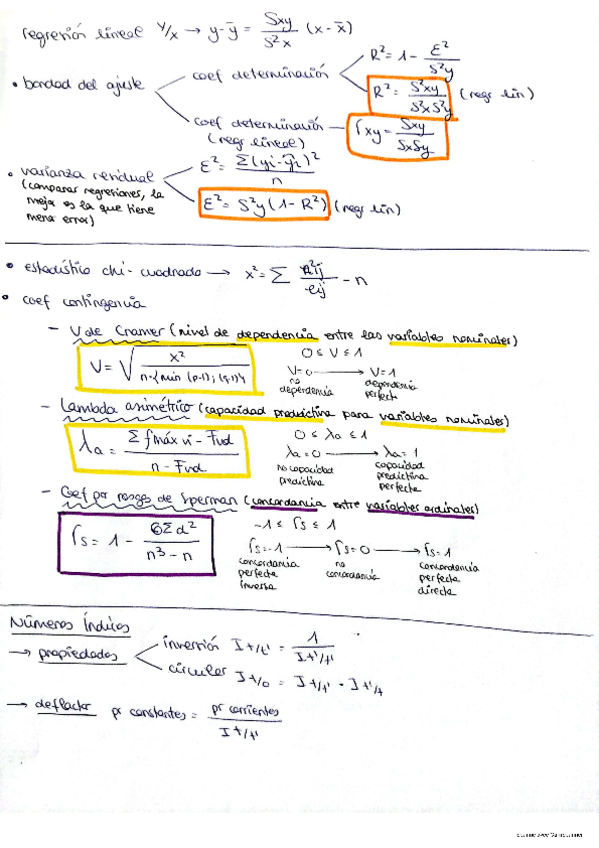 regresión lineal Y/x → y-ȳ = Sxy / S²x (x - x̄)
• bondad del ajuste
coef determinación
R² = 1 - ε² / S²y
R² = S²xy / S²x S²y (regr lin)
coef determinación (regr lineal)
rxy = Sxy / SxSy
• varianza residual
(comparar regresiones, la
mejor es la que tiene
menor error)
ε² = Σ(yi - ŷi)² / n
ε² = S²y (1 - R²) (regr lin)
• estadístico chi-cuadrado → x² = Σ n²ij / eij - n
• coef contingencia
- V de Cramer (nivel de dependencia entre las variables nominales)
V = √ x² / n·{min (p-1); (q-1)}
0 ≤ V ≤ 1
V=0 → V=1
no dependencia
dependencia perfecta
- Lambda asimétrico (capacidad predictiva para variables nominales)
λa = Σ fmáx vi - Fvd / n - Fvd
0 ≤ λa ≤ 1
λa = 0 → λa = 1
no capacidad predictiva
capacidad predictiva perfecta
- Coef por rangos de Sperman (concordancia entre variables ordinales)
rs = 1 - 6Σd² / n³ - n
-1 ≤ rs ≤ 1
rs=-1 → rs=0 → rs=1
concordancia perfecta inversa
no concordancia
concordancia perfecta directa
Números Índices
→ propiedades
inversión It/t' = 1 / It'/t
circular It/0 = It/t' · It'/
→ deflactar pr constantes = pr corrientes / It/t'